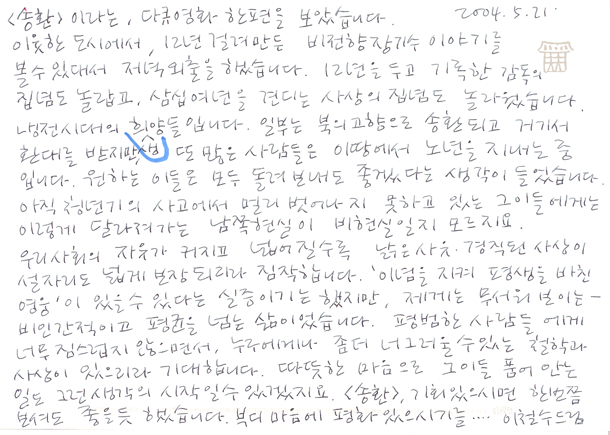 <송환>이라는, 다큐영화 한편을 보았습니다. 2004.5.21.
이웃한 도시에서, 12년 걸려 만든 비전향장기수 이야기를
볼 수 있대서 저녁외출을 했습니다. 12년을 두고 기록한 감독의
집념도 놀랍고, 삼십여년을 견디는 사상의 집념도 놀라웠습니다.
냉전시대의 희양들입니다. 일부는 북의 고향으로 송환되고 거기서
생
환대를 받지만, 또 많은 사람들은 이땅에서 노년을 지내는 중
입니다. 원하는 이들은 모두 돌려 보내도 좋겠다는 생각이 들었습니다.
아직 청년기의 사고에서 멀리 벗어나지 못하고 있는 그이들에게는
이렇게 달라져가는 남쪽현실이 비현실일지 모르지요.
우리사회의 자유가 커지고 넓어질수록 낡은 사유·경직된 사상이
설자리도 넓게 보장되리라 짐작합니다. '이념을 지켜 평생을 바친
영웅'이 있을 수 있다는 실증이기는 했지만, 제게는 무서워 보이는-
비인간적이고 평균을 넘는 삶이었습니다. 평범한 사람들에게
너무 짐스럽지 않으면서, 누구에게나 좀더 너그러울 수 있는 철학과
사상이 있으리라 기대합니다. 따뜻한 마음으로 그이들 품어 안는
일도 그런 생각의 시작일 수 있겠지요. <송환>, 기회있으시면 한번쯤
보셔도 좋을듯 했습니다. 부디 마음에 평화 있으시기를.... 이철수드림